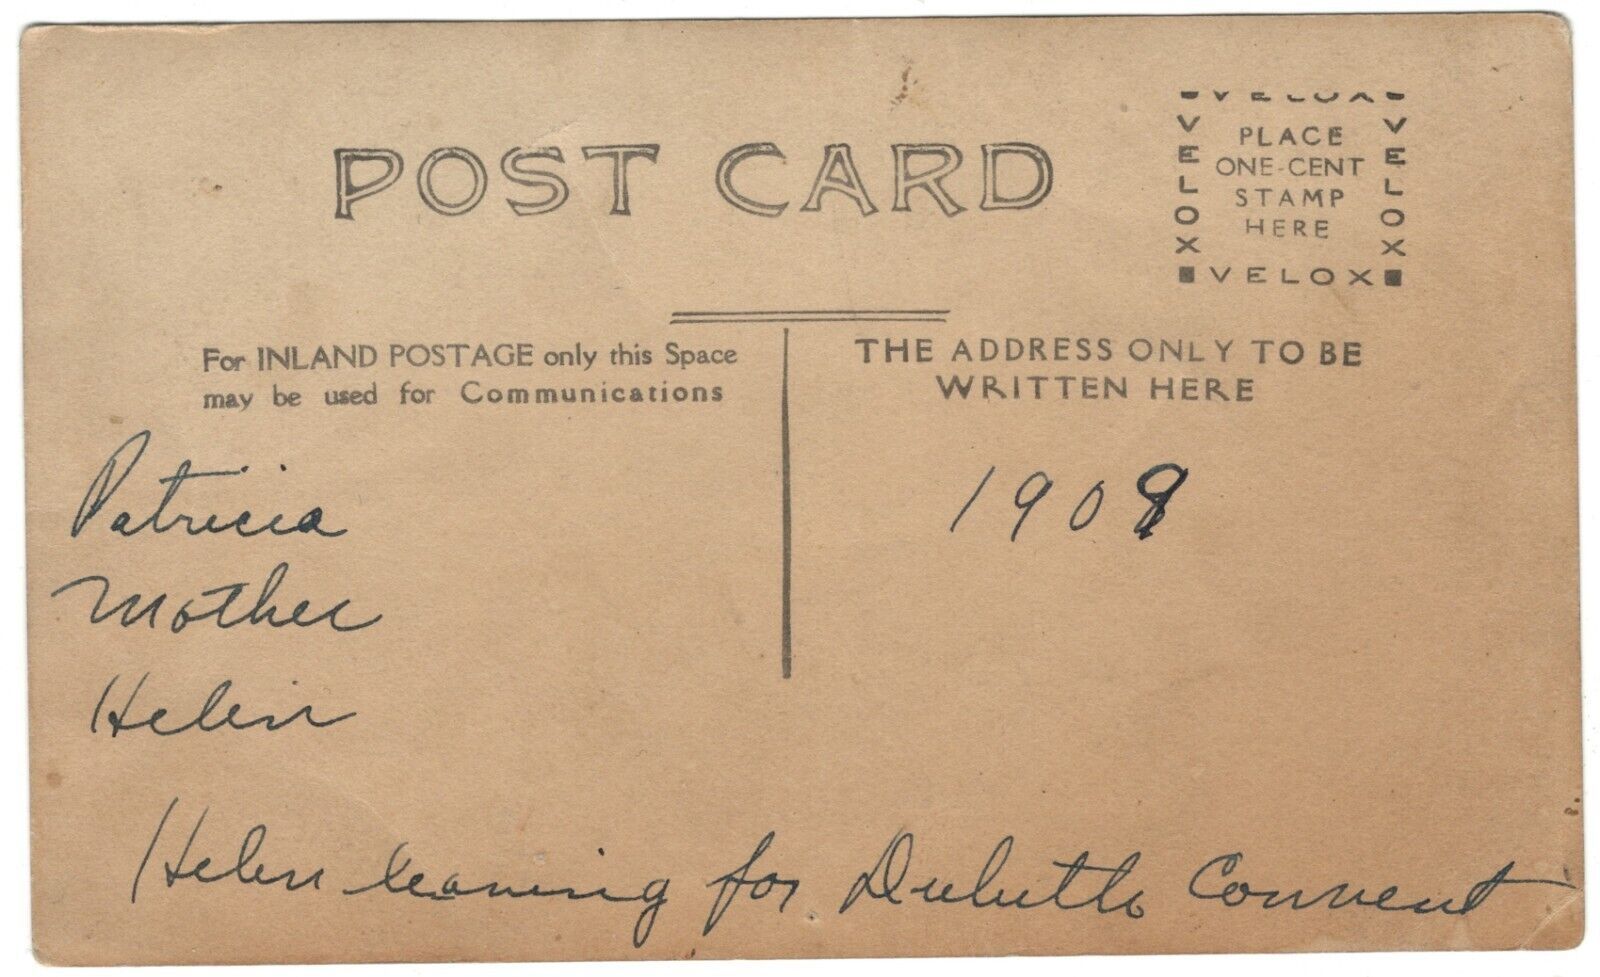 POST CARD
VELOX
VELOX
VELOX
VELOX
PLACE
ONE-CENT
STAMP
HERE
For INLAND POSTAGE only this Space
may be used for Communications
THE ADDRESS ONLY TO BE
WRITTEN HERE
Patricia
Mother
Helen
1909
Helen leaving for Duluth Convent